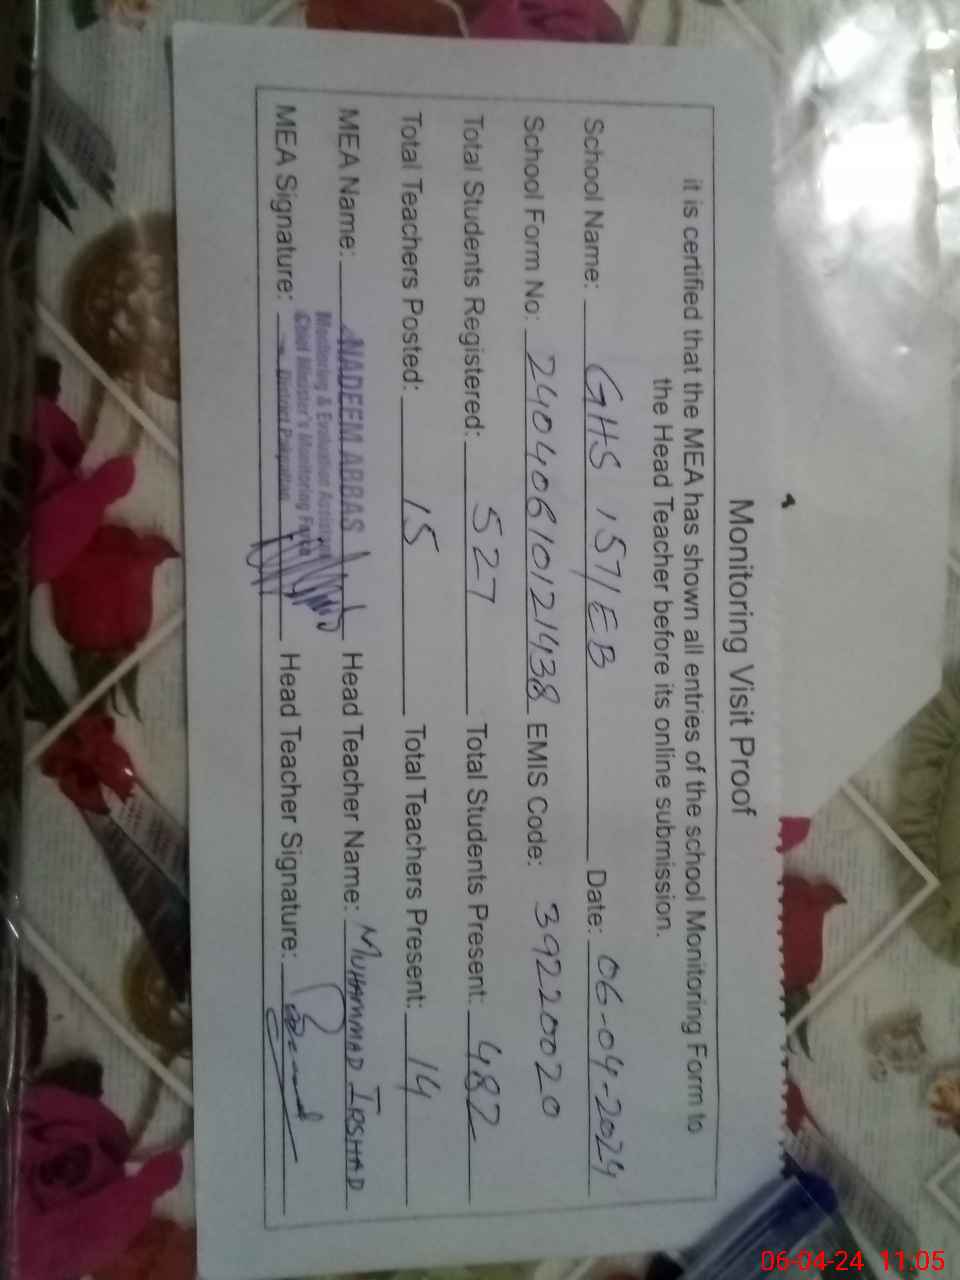 Monitoring Visit Proof
it is certified that the MEA has shown all entries of the school Monitoring Form to
the Head Teacher before its online submission.
School Name: GHS 157/EB Date: 06-04-2024
School Form No: 24040610121438 EMIS Code: 39220020
Total Students Registered: 527 Total Students Present: 482
Total Teachers Posted: 15 Total Teachers Present: 14
MEA Name: NADEEM ABBAS Head Teacher Name: MUHAMMAD IRSHAD
Monitoring & Evaluation Assistant
Chief Minister's Monitoring Force
MEA Signature: District Pakpattan Head Teacher Signature:
06-04-24 11:05